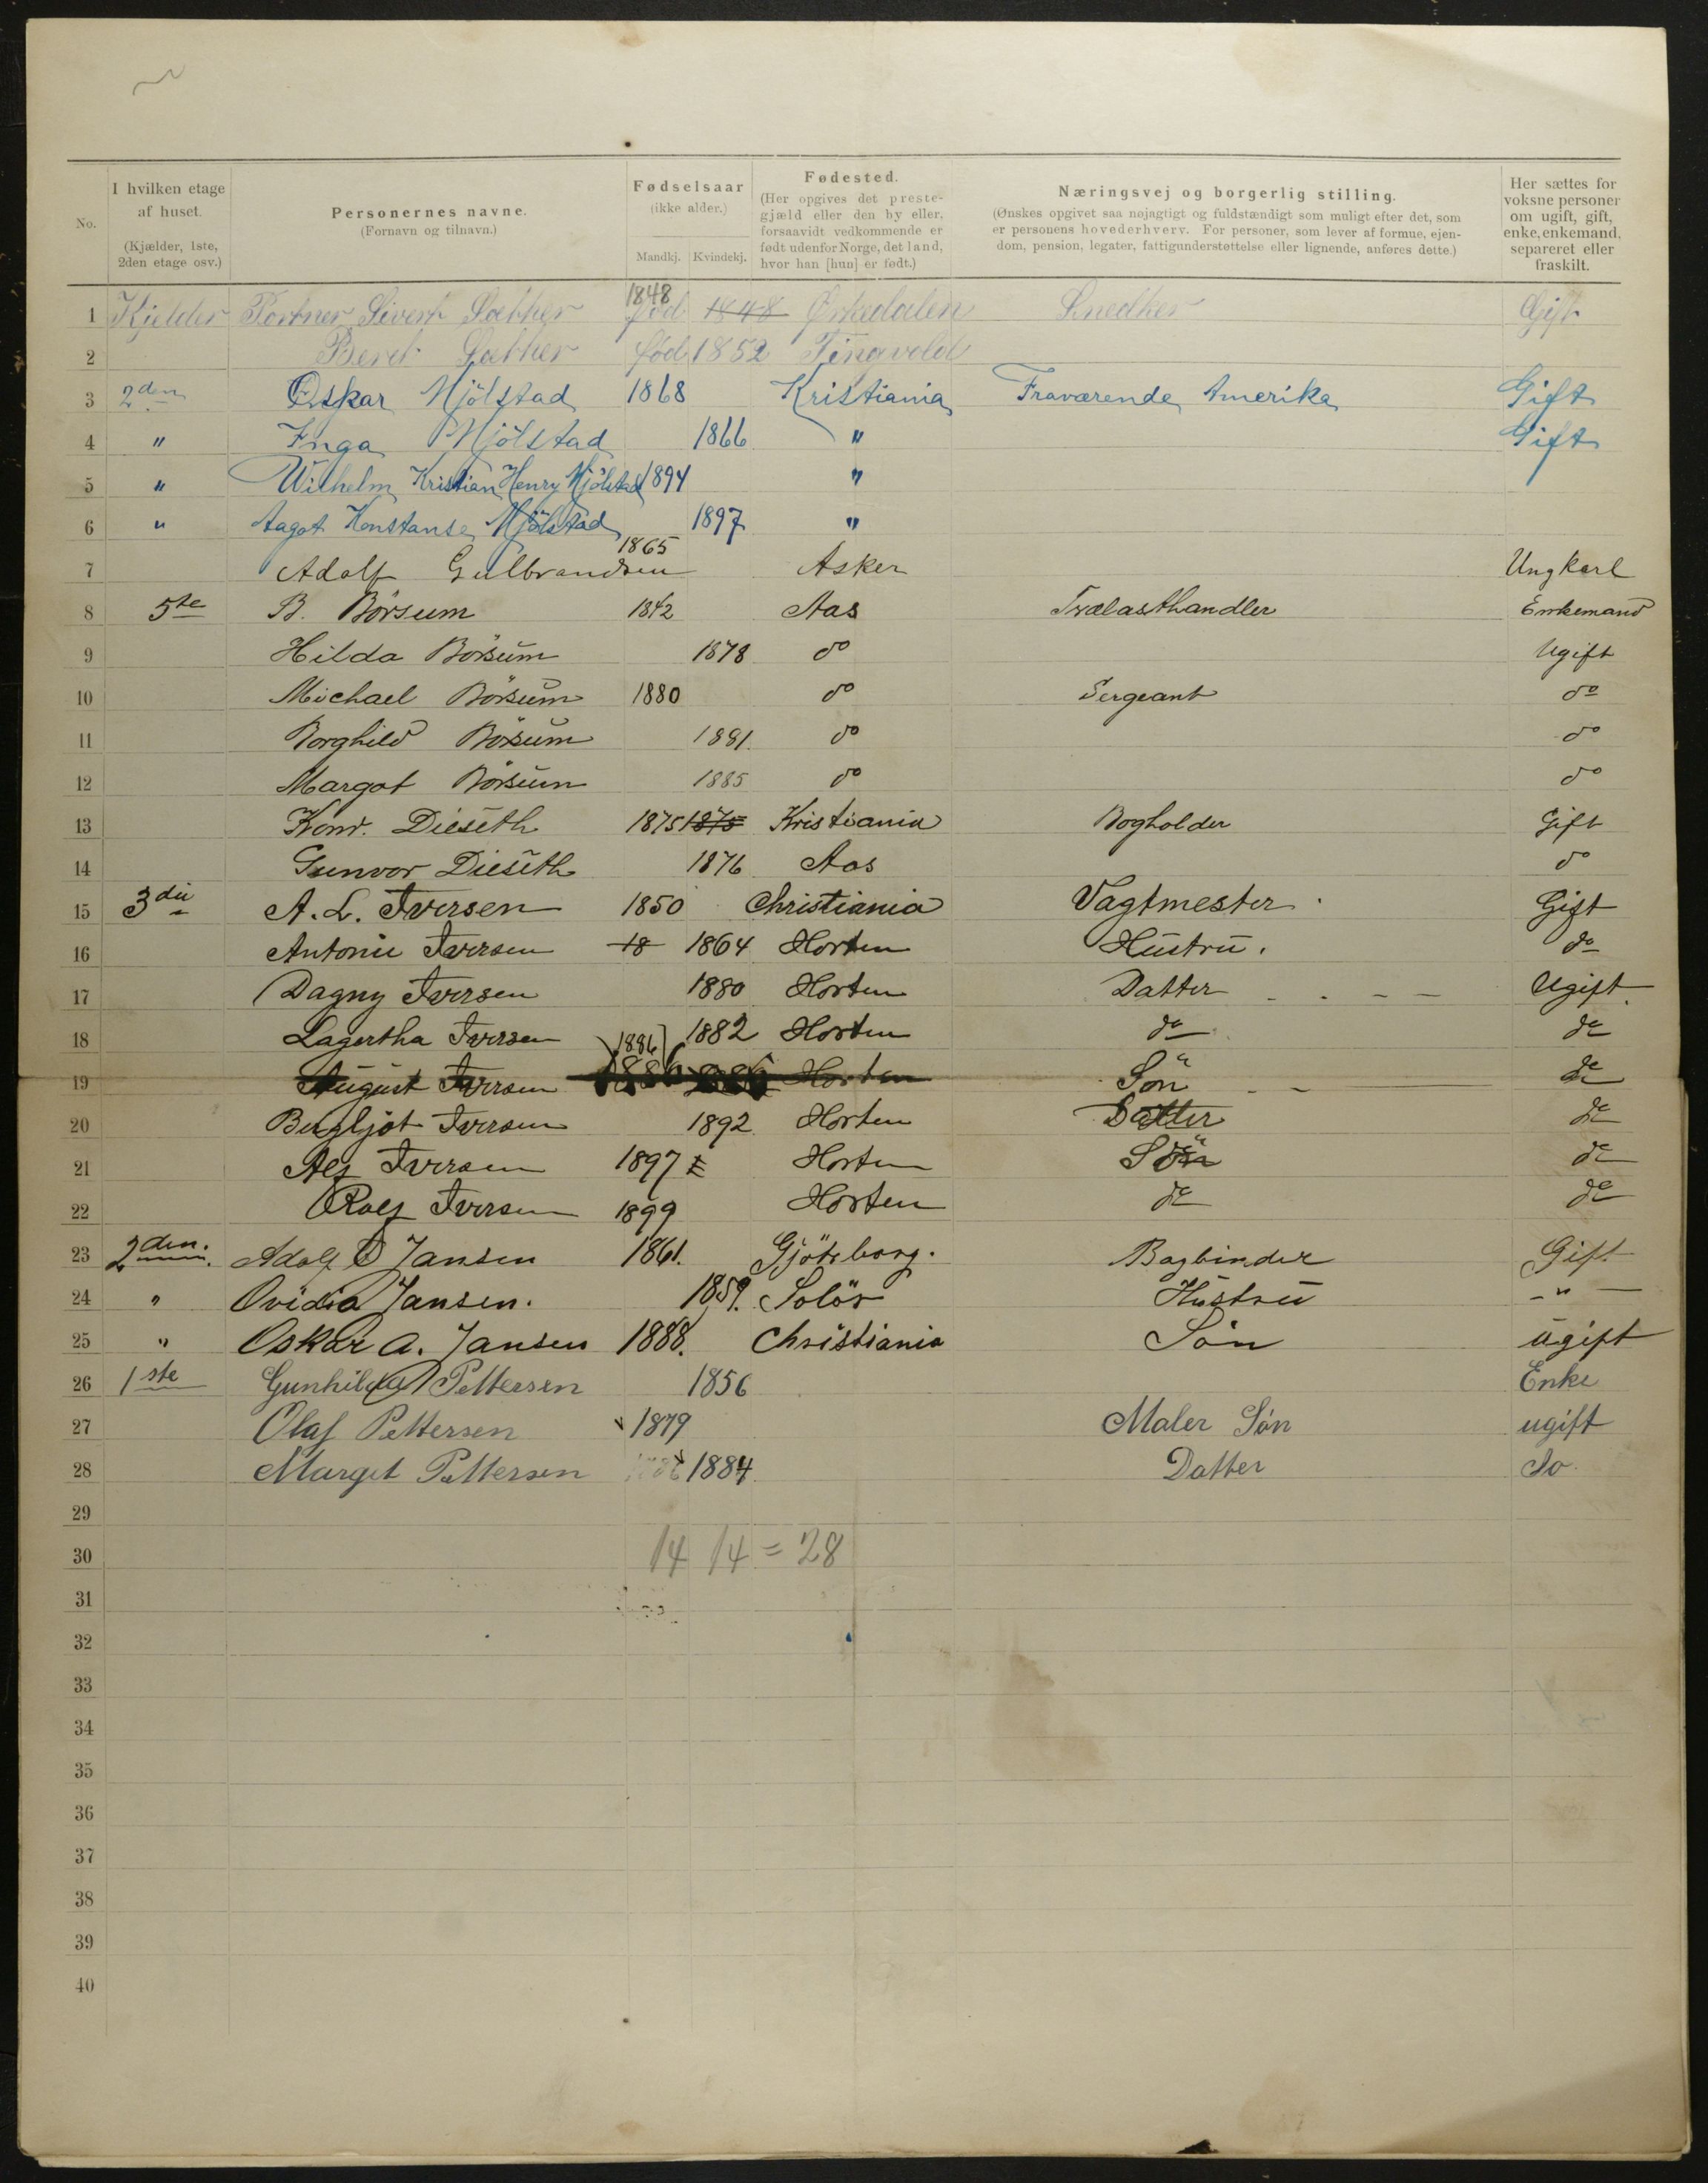 No. I hvilken etage af huset. (Kjælder, 1ste, 2den etage osv.) Personernes navne. (Fornavn og tilnavn.) Fødselsaar (ikke alder.) Mandkj. Kvindekj. Fødested. (Her opgives det prestegjæld eller den by eller, forsaavidt vedkommende er født udenfor Norge, det land, hvor han [hun] er født.) Næringsvej og borgerlig stilling. (Ønskes opgivet saa nøjagtigt og fuldstændigt som muligt efter det, som er personens hovederhverv. For personer, som lever af formue, ejendom, pension, legater, fattigunderstøttelse eller lignende, anføres dette.) Her sættes for voksne personer om ugift, gift, enke, enkemand, separeret eller fraskilt.
1 Kjelder Portner Sivert Sæther 1848 fød 1848 Ørkedalen Snedker Gift
2 Beret Sæther fød 1852 Tingvold
3 2den Oskar Mjölstad 1868 Kristiania Fraværende Amerika Gift
4 " Inga Mjölstad 1866 " Gift
5 " Wilhelm Kristian Henry Mjölstad 1894 "
6 " Aagot Konstanse Mjölstad 1897 "
7 Adolf Gulbrandsen 1865 Asker Ungkarl
8 5te B. Börsum 1842 Aas Trælasthandler Enkemand
9 Hilda Börsum 1878 do Ugift
10 Michael Börsum 1880 do Sergeant do
11 Borghild Börsum 1881. do do
12 Margot Börsum 1885 do do
13 Konr. Dieseth 1875 1875 Kristiania Bogholder Gift
14 Gunvor Dieseth 1876 Aas do
15 3die A. L. Iversen 1850 Christiania Vagtmester Gift
16 Antonie Iversen 18 1864 Horten Hustru. do
17 Dagny Iversen 1880 Horten Datter Ugift
18 Lagertha Iversen 1882 Horten do do
19 August Iversen 1886 1886 Horten Sön do
20 Bergljot Iversen 1892 Horten Datter do
21 Alf Iversen 1897 Horten Sön do
22 Rolf Iversen 1899 Horten do do
23 2den. Adolf O Jansen 1861. Gjöteborg. Bogbinder Gift
24 " Ovidia Jansen. 1859. Solör Hustru - " -
25 " Oskar A. Jansen 1888. Christiania Sön ugift
26 1ste Gunhilda Pettersen 1856 Enke
27 Olaf Pettersen 1879 Maler Sön ugift
28 Margit Pettersen 1884 Datter do.
29
30 14 14 = 28
31
32
33
34
35
36
37
38
39
40